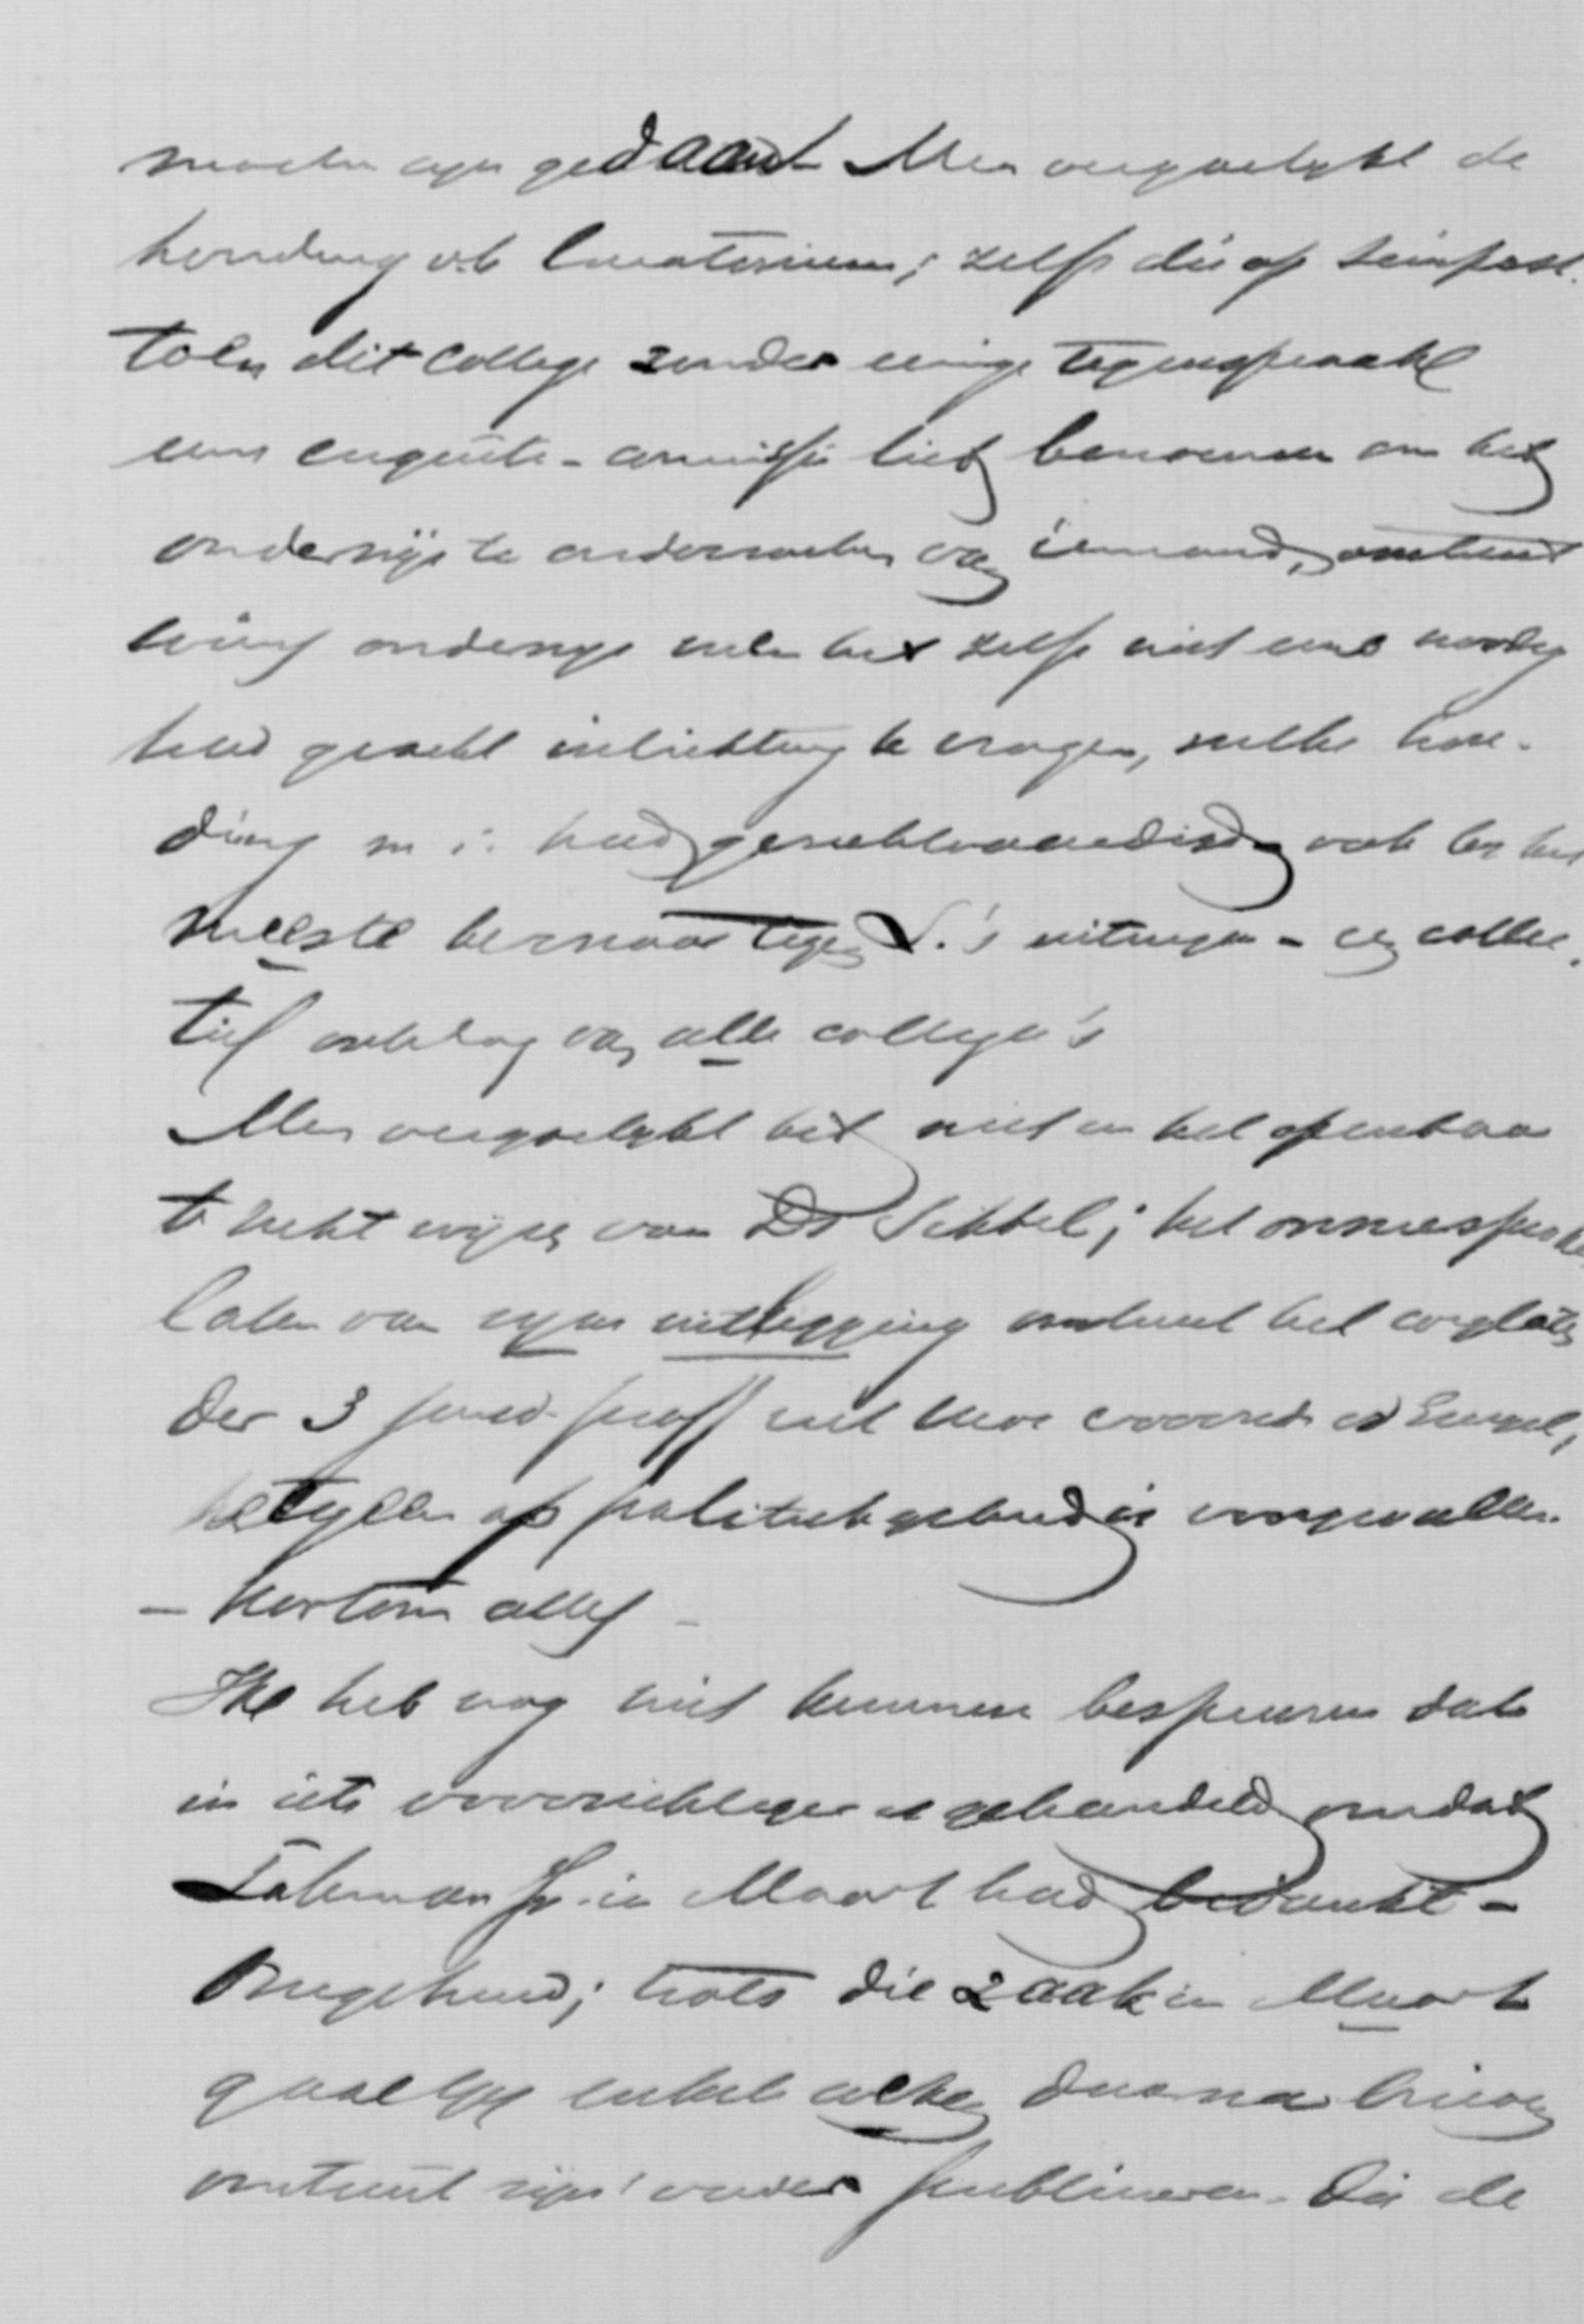 moeten zijn gedaan! Men vergoelijkt de
houding v/h Curatorium; zelfs die op Seinpost
toen dit college zonder eenige tegenspraak
eene enquête-commissie liet benoemen om het
onderwijs te onderzoeken van iemand, omtrent
wiens onderwijs men het zelfs niet eens noodig
had geacht inlichting te vragen, welke hou-
ding m.i. had gerechtvaardigd ook bij het
meeste bezwaar tegen L.'s uitingen - een collec-
tief ontslag van alle collega's
Men vergoelijkt het niet in het openbaar
te recht wijzen van Ds Sikkel; het onweersproken
laten van zijne uitlegging omtrent het
der 3 jurid. proff met hun
op politiek gebied is voorgevallen.
- Kortom alles -
Ik heb nog niet kunnen bespeuren dat
in iets voorzichtiger is gehandeld omdat
in Maart had bedankt -
Omgekeerd; trots die zaak in Maart
gaat hij enkele weken daarna brieven
omtrent zijn vader publiceeren. Die de